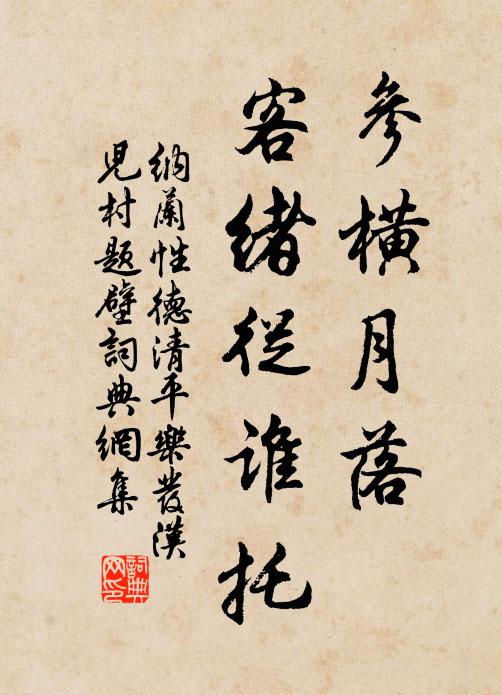 參橫月落
客緒從誰托
納蘭性德清平樂發漢
児村題壁詞典網集
詞典
网印